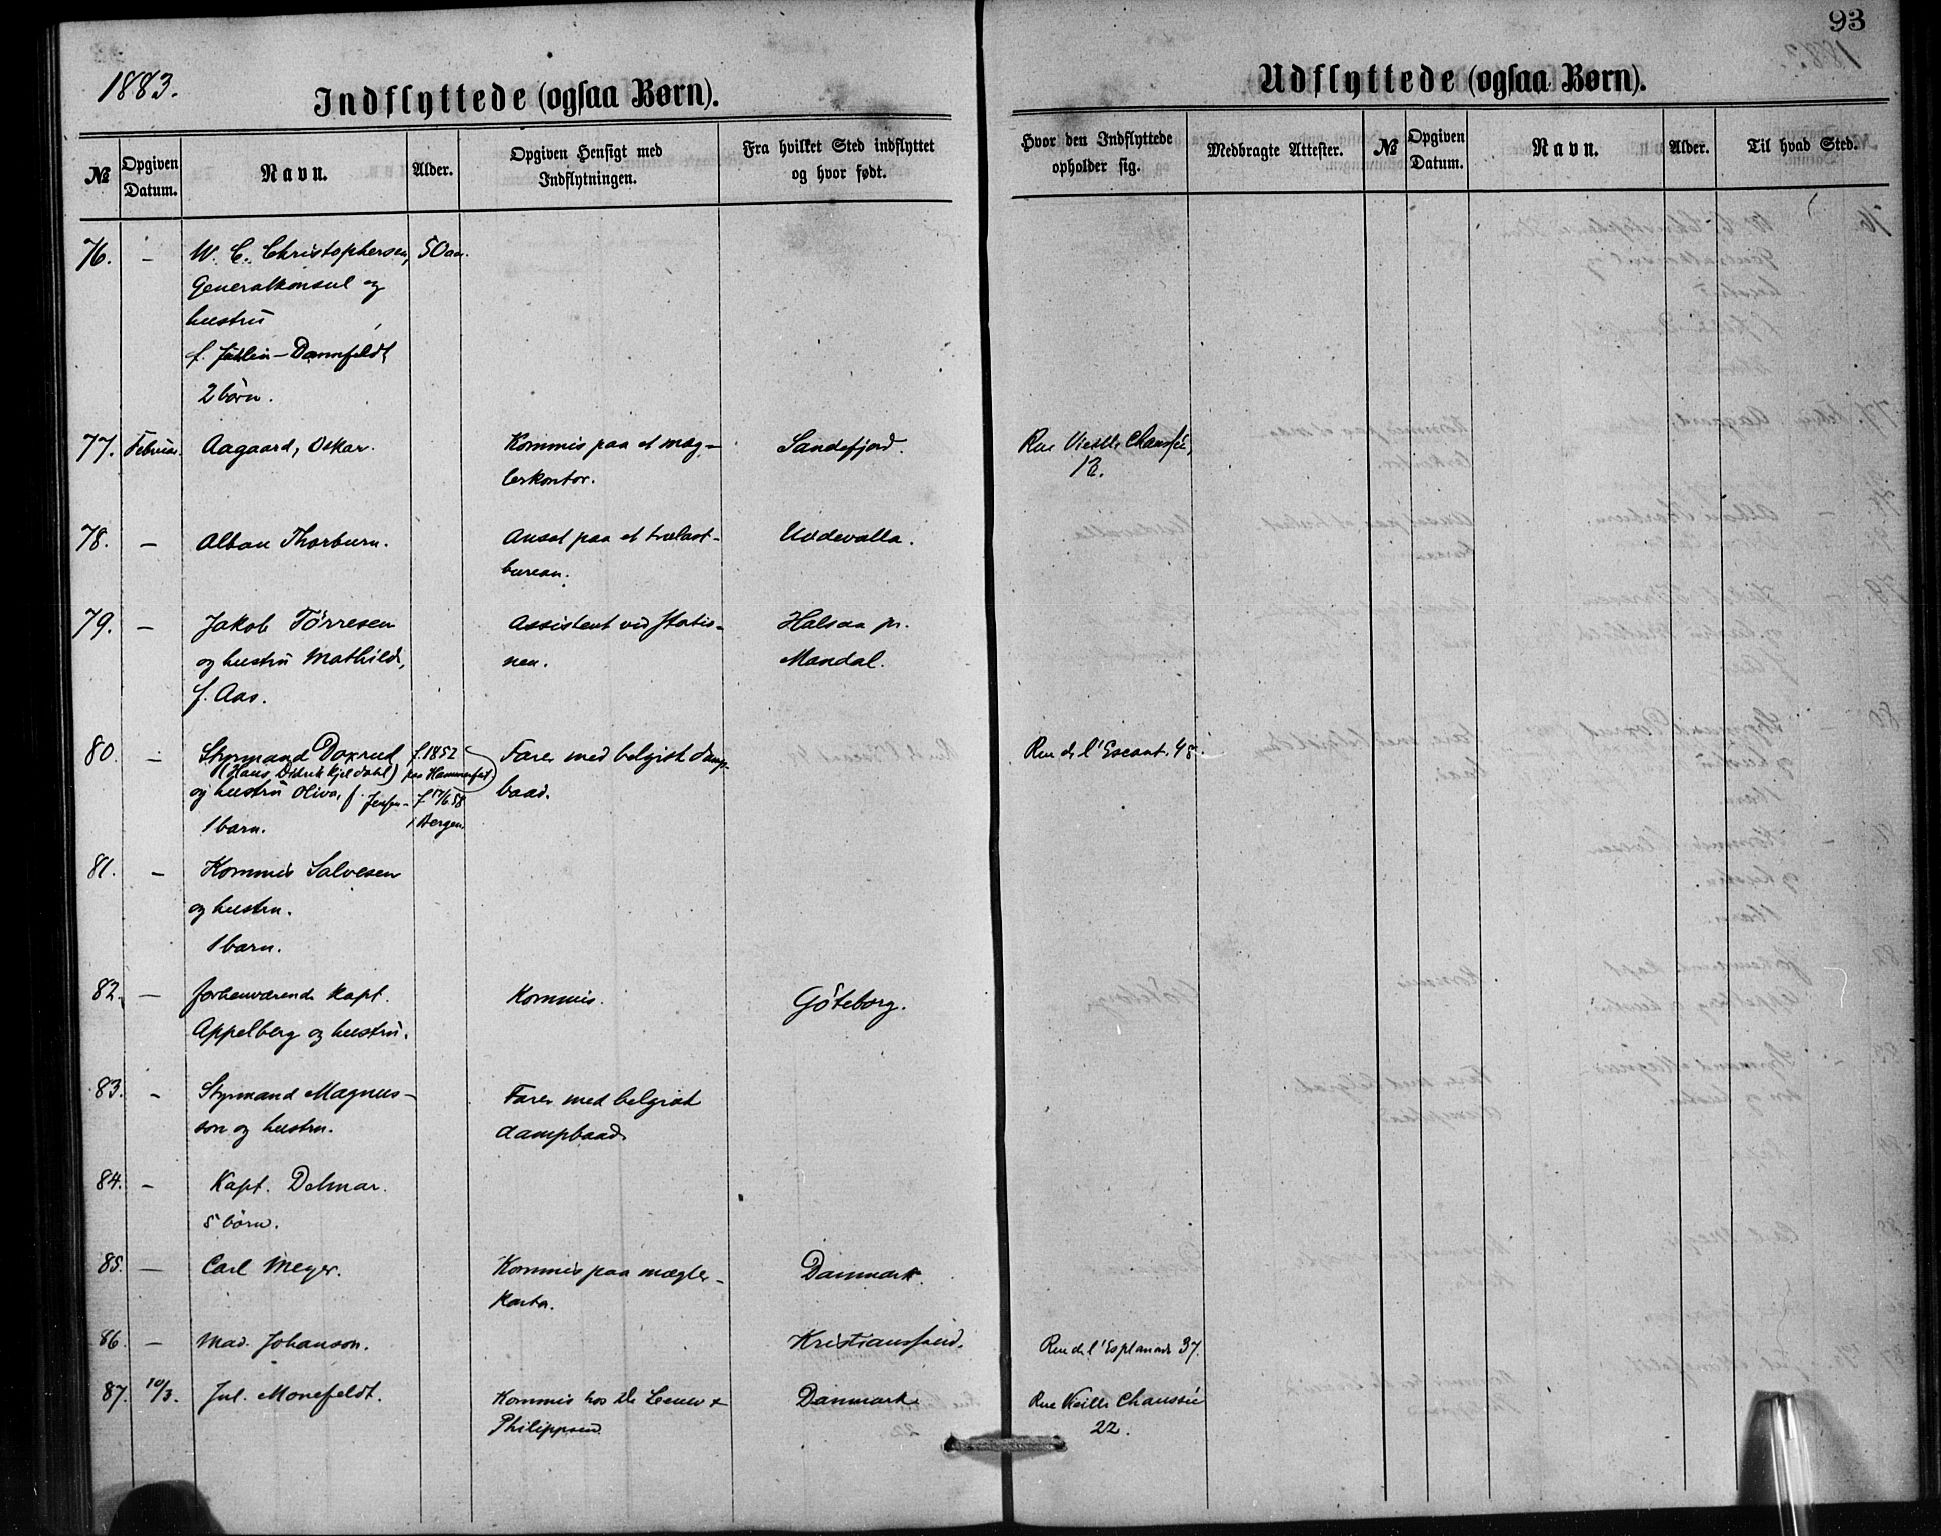 93
1883.
Indflyttede (ogsaa Børn).
Udflyttede (ogsaa Børn).
№ Opgiven Datum. Navn. Alder. Opgiven Hensigt med Indflytningen. Fra hvilket Sted indflyttet og hvor født. Hvor den Indflyttede opholder sig. Medbragte Attester. № Opgiven Datum. Navn. Alder. Til hvad Sted.
76. – W. C. Christophersen, 50 aar.
Generalkonsul og
hustru
f. – Dannfeldt
2 børn.
77. Februar. Aagaard, Oskar. Kommis paa et mæg- Sandefjord. Rue Vieille Chaussée,
lerkontor. 12.
78. – Alban Thorburn. Ansat paa et trælast- Uddevalla.
bureau.
79. – Jakob Törresen Assistent ved statio- Halsaa pr.
og hustru Mathilde, nen. Mandal.
f. Aas.
80. – Styrmand Doxrud f. 1852 Farer med belgisk damp- Rue de l'Escaut 48.
(Hans Didrik Kjeldahl) paa Hammerfest
og hustru Oliva, f. Jensen – f. 17/6 58 baad.
1 barn. i Bergen
81. – Kommis Salvesen
og hustru.
1 barn.
82. – forhenværende Kapt. Kommis. Göteborg.
Appelberg og hustru.
83. – Styrmand Magnus- Farer med belgisk
son og hustru. dampbaad.
84. – Kapt. Delmar.
5 børn.
85. – Carl Meyer. Kommis paa mægler- Danmark.
kontor.
86. – Mad. Johanson. Kristianssand. Rue de l'Esplanade 37.
87. 10/3. Jul. Monefeldt. Kommis hos De Leeuw & Danmark. Rue Vieille Chaussée
Philippsen 22.